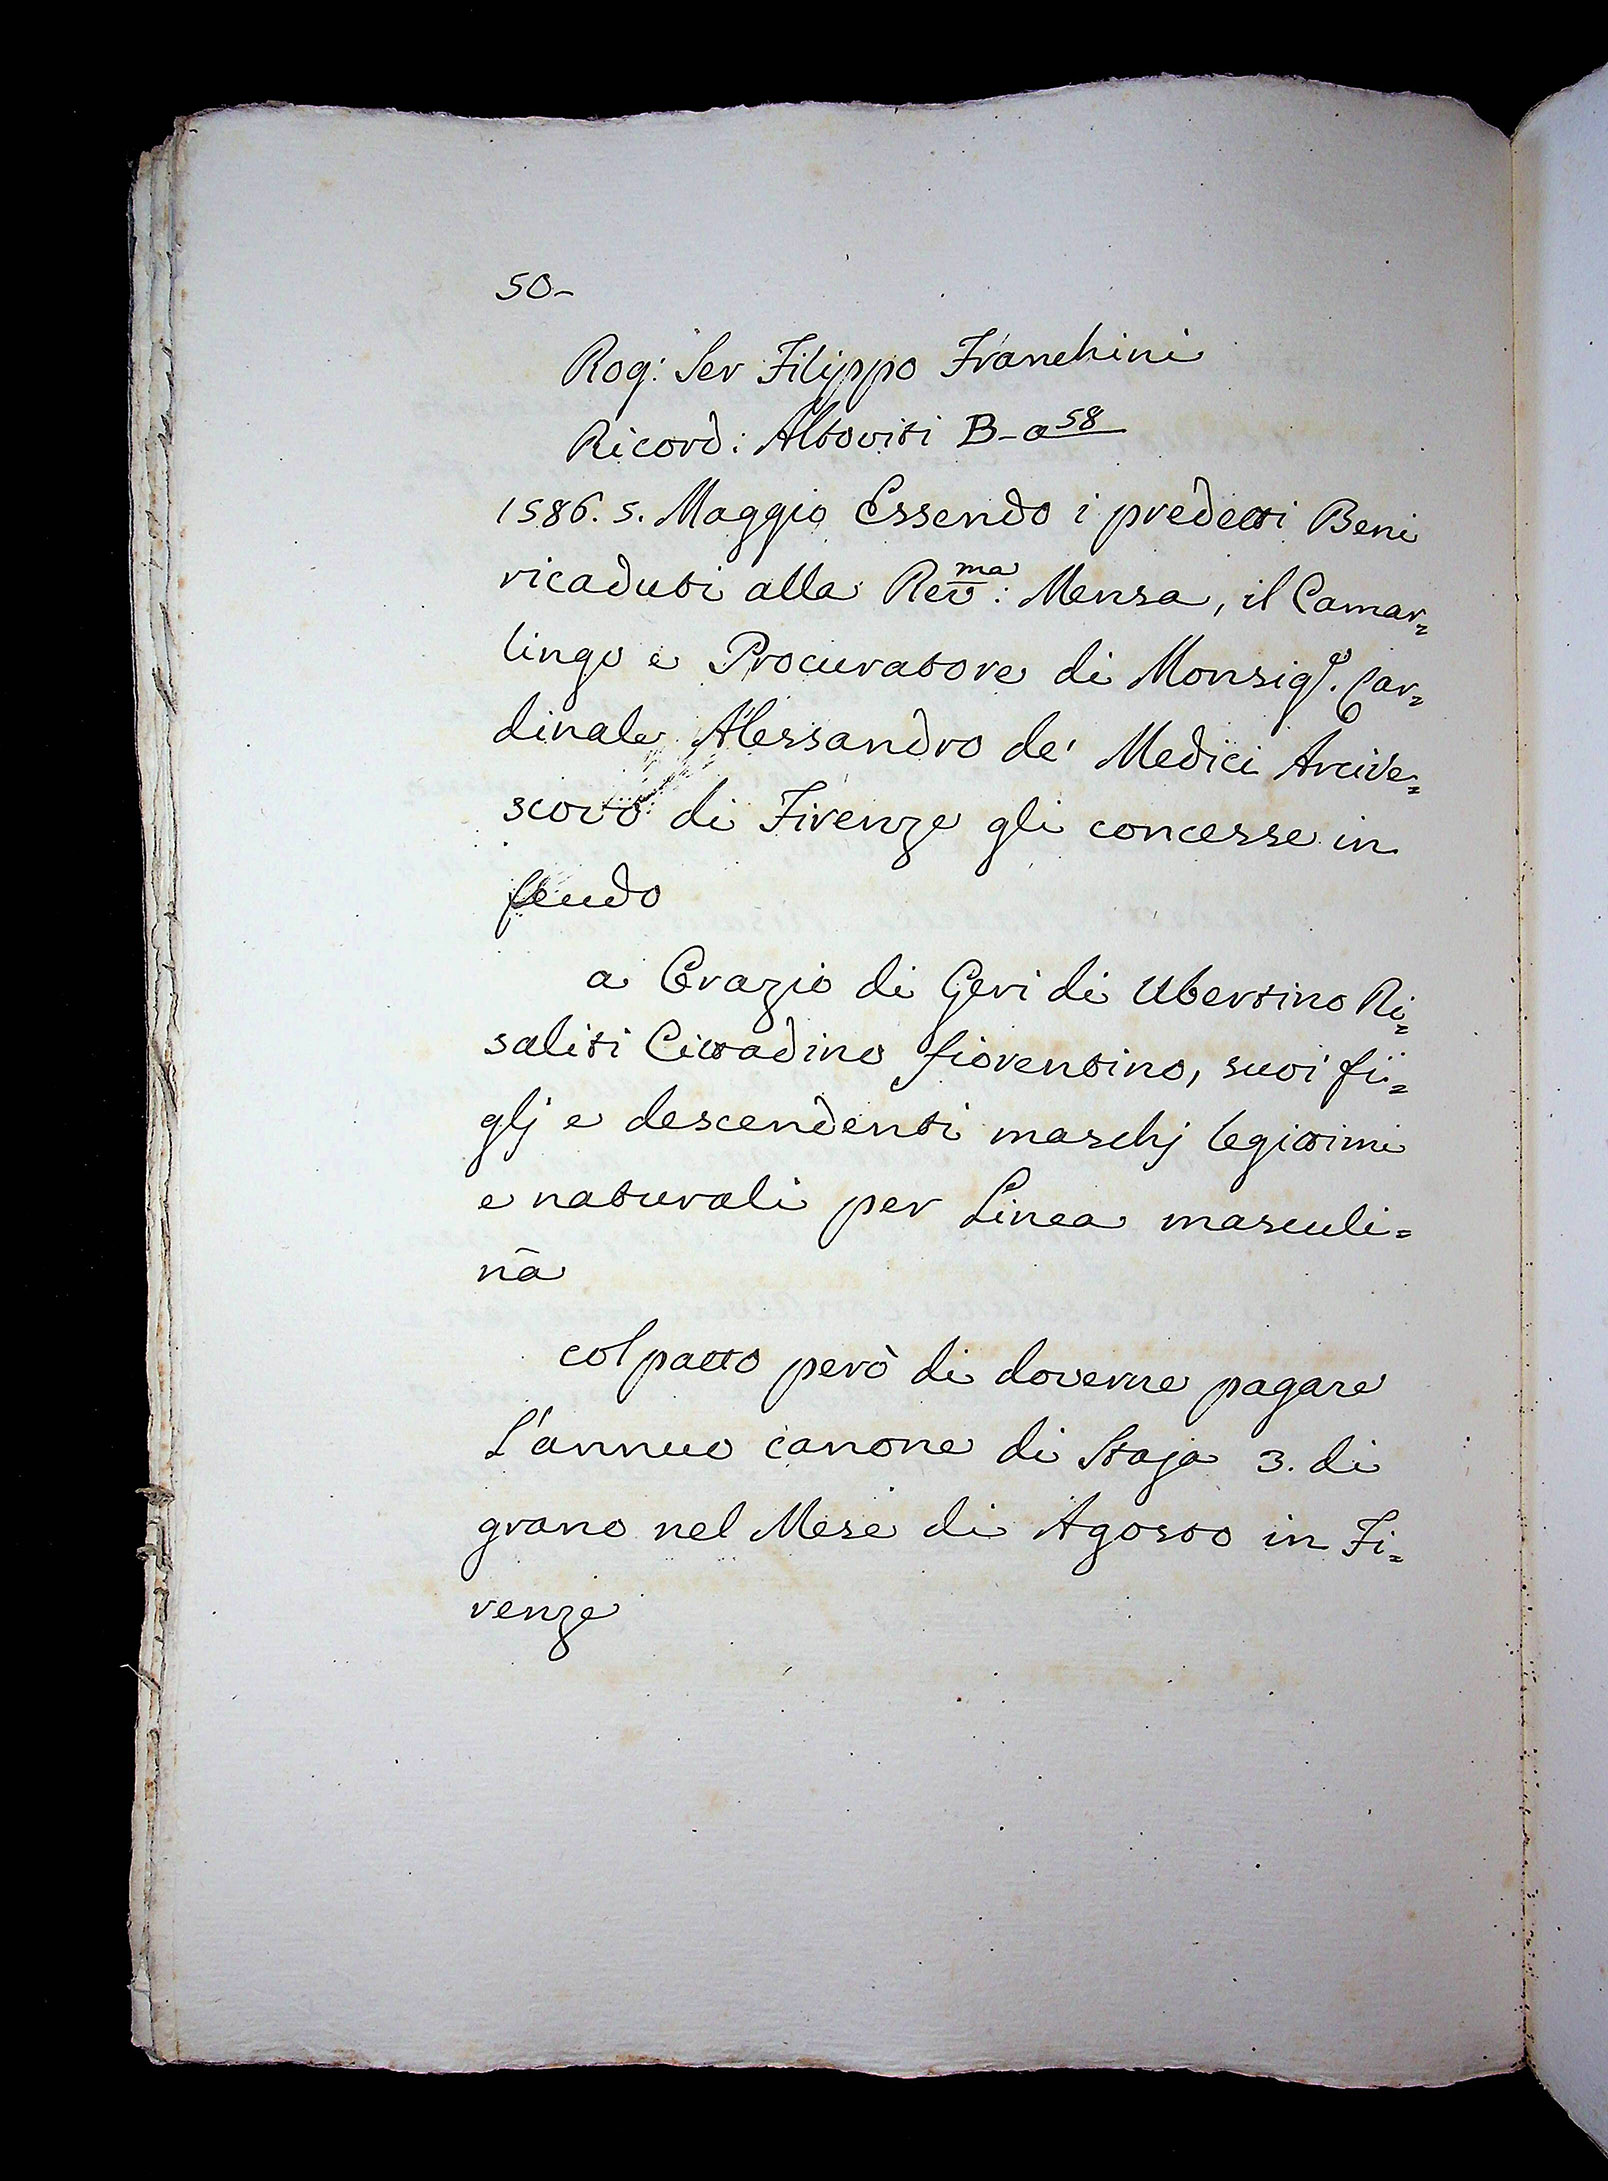 50-
Rog: Ser Filippo Franchini
Ricord: Altoviti B-a 58
1586. 5. Maggio Essendo i predetti Beni
ricaduti alla Rev:ma Mensa, il Camar=
lingo e Procuratore di Monsigr. Car=
dinale Alessandro de' Medici Arcive=
scovo di Firenze gli concesse in
feudo
a Orazio di Geri di Ubertino Ri=
saliti Cittadino fiorentino, suoi fi=
glj e descendenti maschj legittimi
e naturali per Linea masculi=
na
col patto però di doverne pagare
l'annuo canone di Staja 3. di
grano nel Mese di Agosto in Fi=
renze